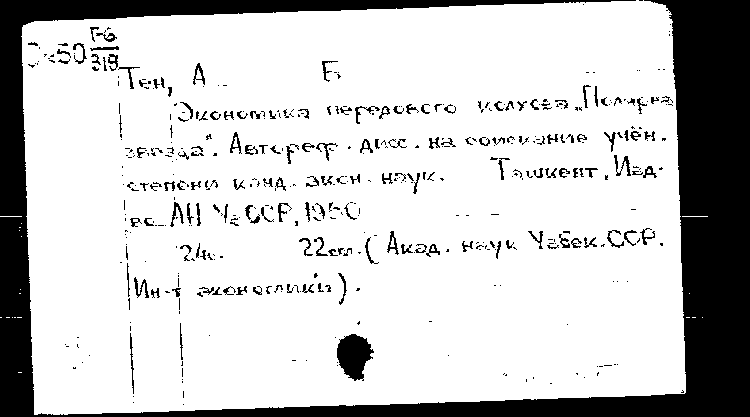 Г-6
319
Тен, А Б
Экономика передового колхоза „Полярная
звезда". Автореф. дисс. на соискание учён.
степени канд. экон. наук. Ташкент, Изд-
во АН УзССР, 1950
24с. 22см. (Акад. наук Узбек.ССР.
Ин-т экономики).